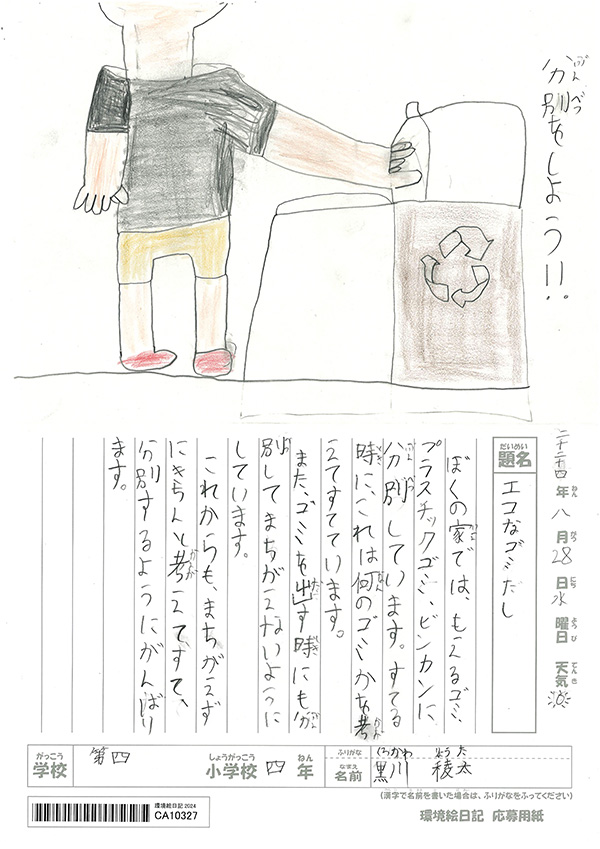 分別をしよう!!
ぶんべつ
二十二四年八月28日水曜日 天気
ねん がつ にち ようび てんき
だいめい
題名
エコなゴミだし
ぼくの家では、もえるゴミ、
プラスチックゴミ、ビンカンに
分別しています。すてる
時に、これは何のゴミかを考
えてすてています。
また、ゴミを出す時にも分
別してまちがえないように
しています。
これからも、まちがえず
にきちんと考えてすて、
分別するようにがんばり
ます。
がっこう しょうがっこう ねん ふりがな くろかわ りょうた
学校 第四 小学校 四 年 なまえ 名前 黒川 稜太
(漢字で名前を書いた場合は、ふりがなをふってください)
環境絵日記 2024
CA10327
環境絵日記 応募用紙